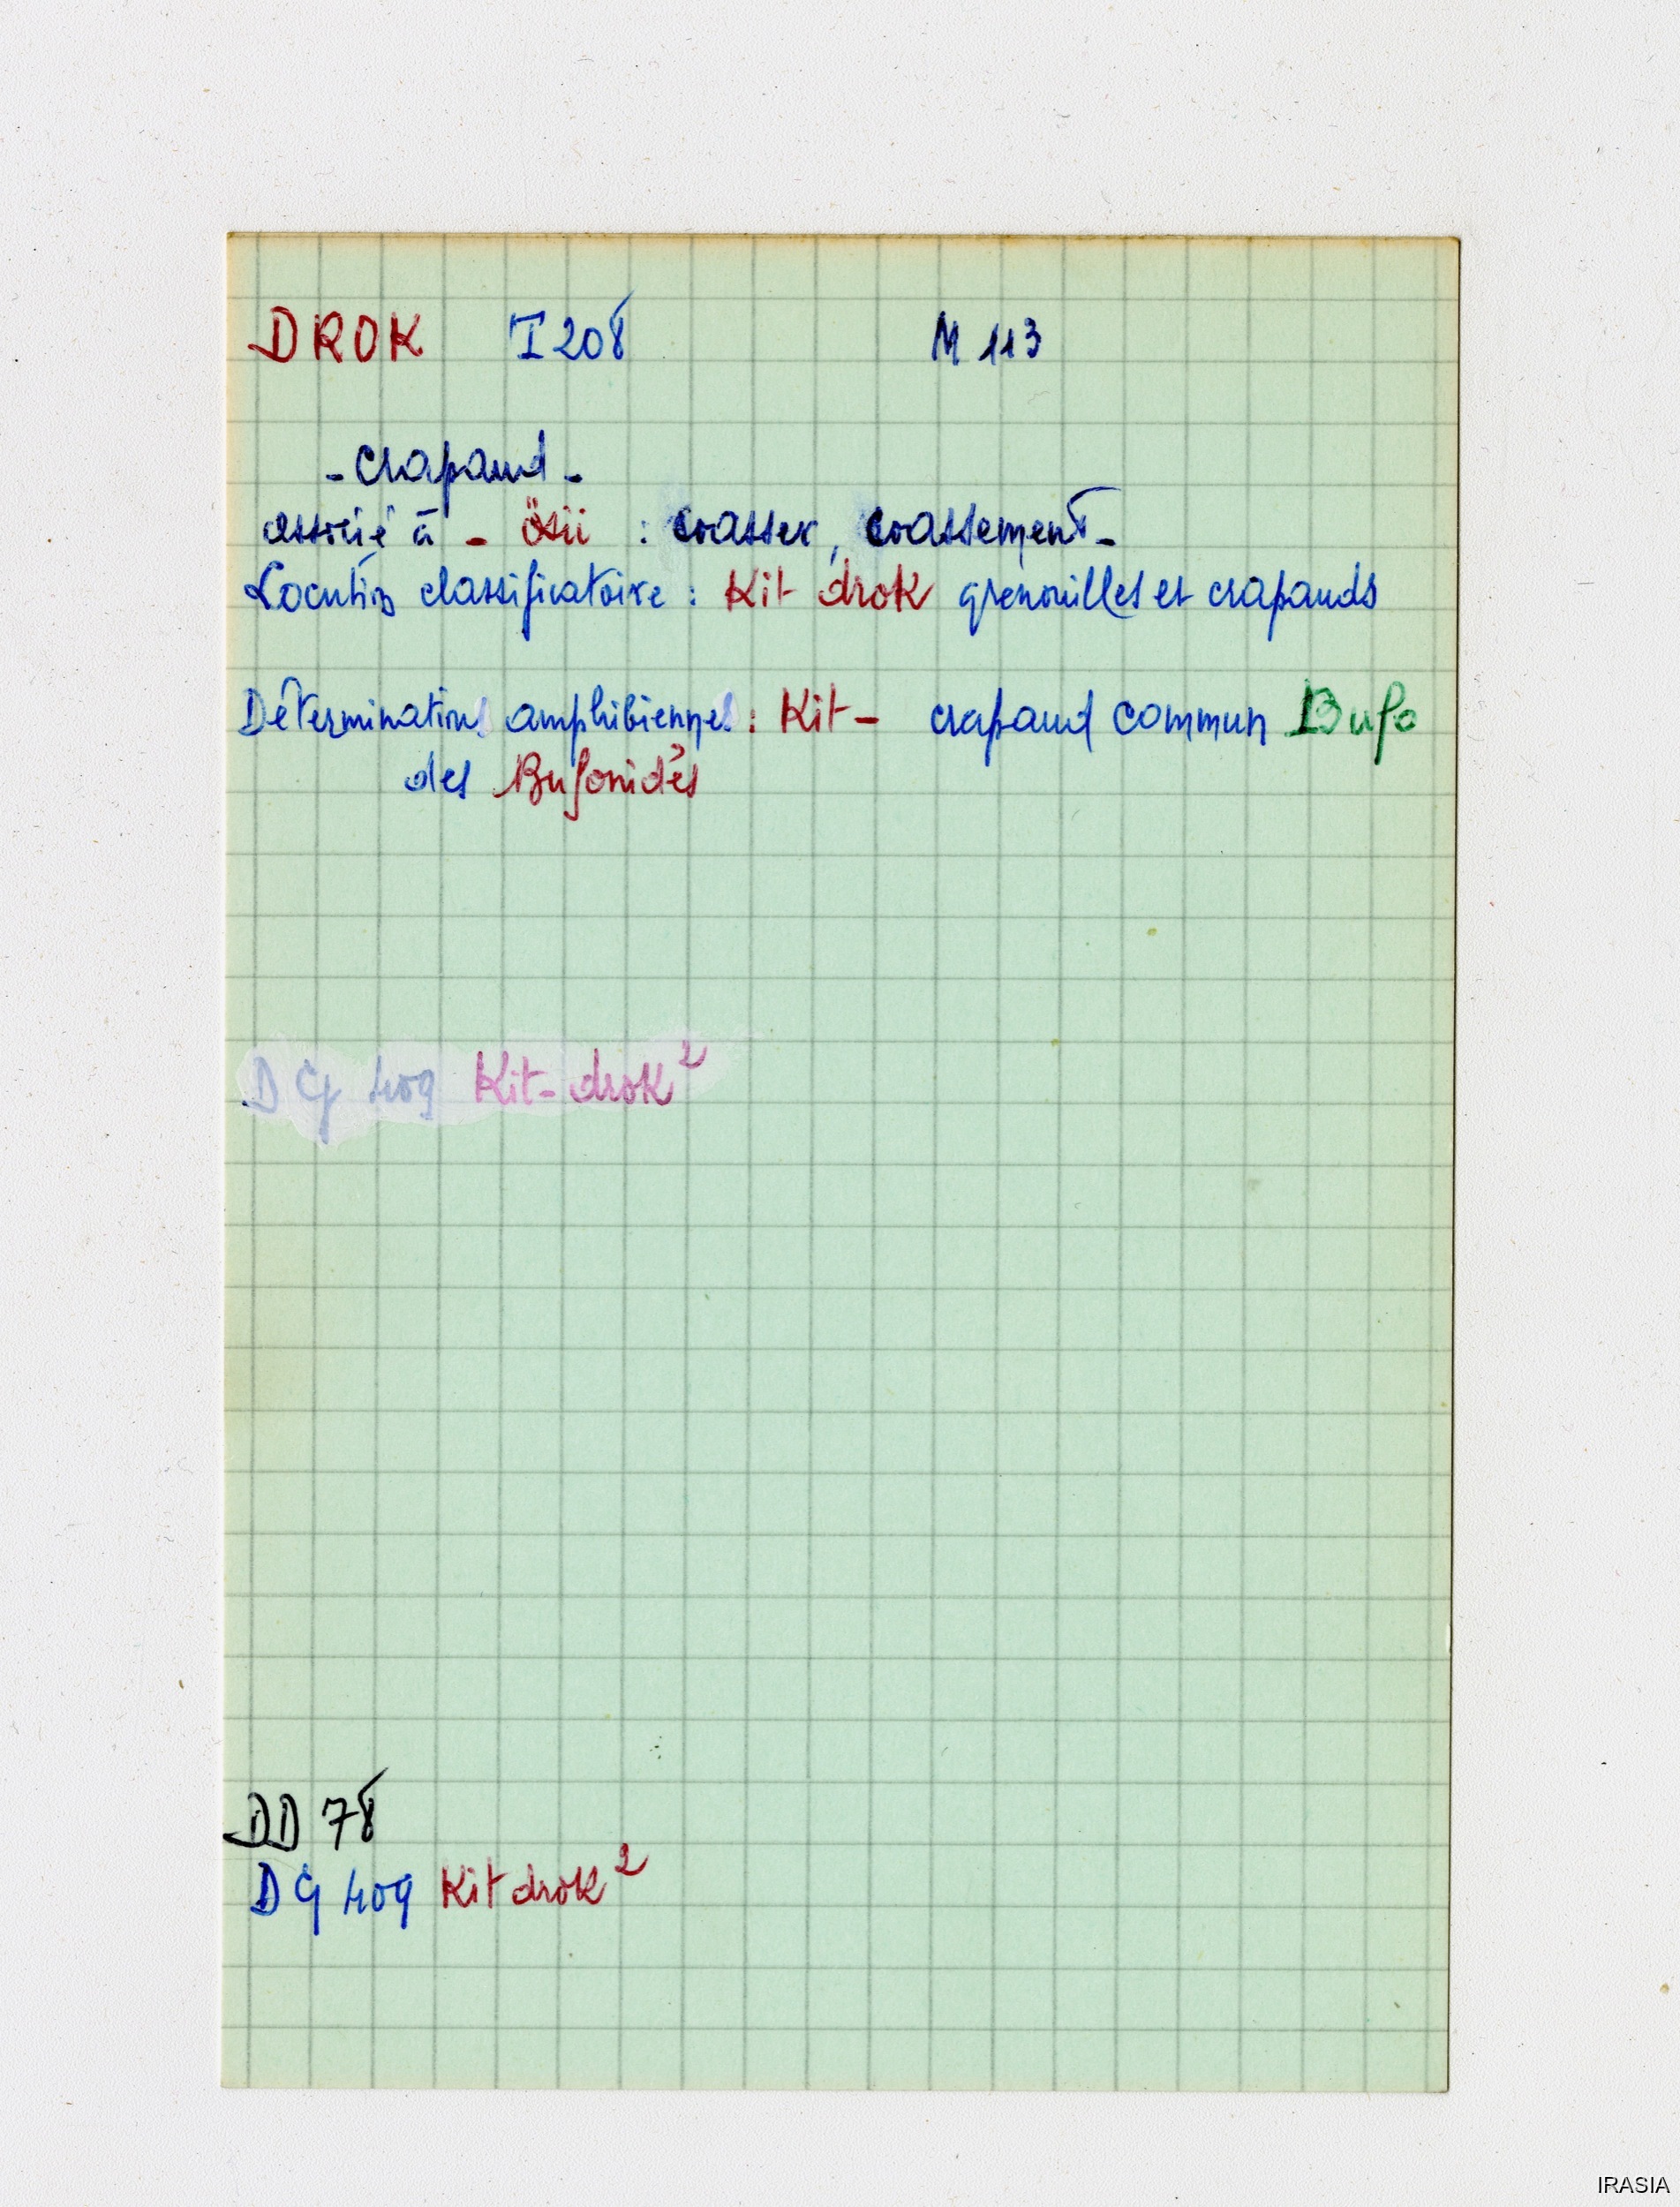 DROK I 208 M 113
- crapaud -
associé à - ösii : coasser, coassement -
Locution classificatoire : Kit drok grenouilles et crapauds
Déterminations amphibiennes : Kit - crapaud commun Bufo
des Bufonidés
DG 409 Kit-drok²
DD 78
DG 409 Kit drok²
IRASIA